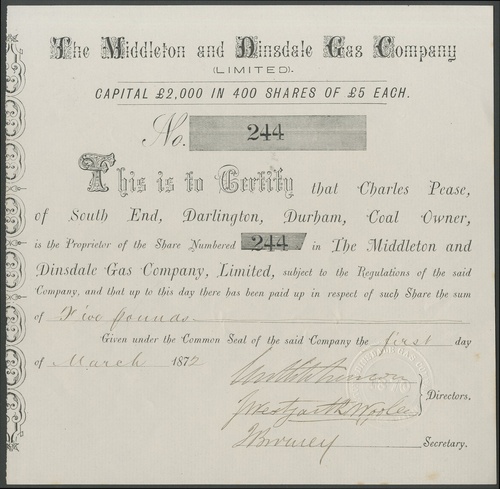 The Middleton and Dinsdale Gas Company
(LIMITED).
CAPITAL £2,000 IN 400 SHARES OF £5 EACH.
No. 244
This is to Certify that Charles Pease,
of South End, Darlington, Durham, Coal Owner,
is the Proprietor of the Share Numbered 244 in The Middleton and
Dinsdale Gas Company, Limited, subject to the Regulations of the said
Company, and that up to this day there has been paid up in respect of such Share the sum
of Two pounds
Given under the Common Seal of the said Company the first day
of March 1872
Directors.
Secretary.